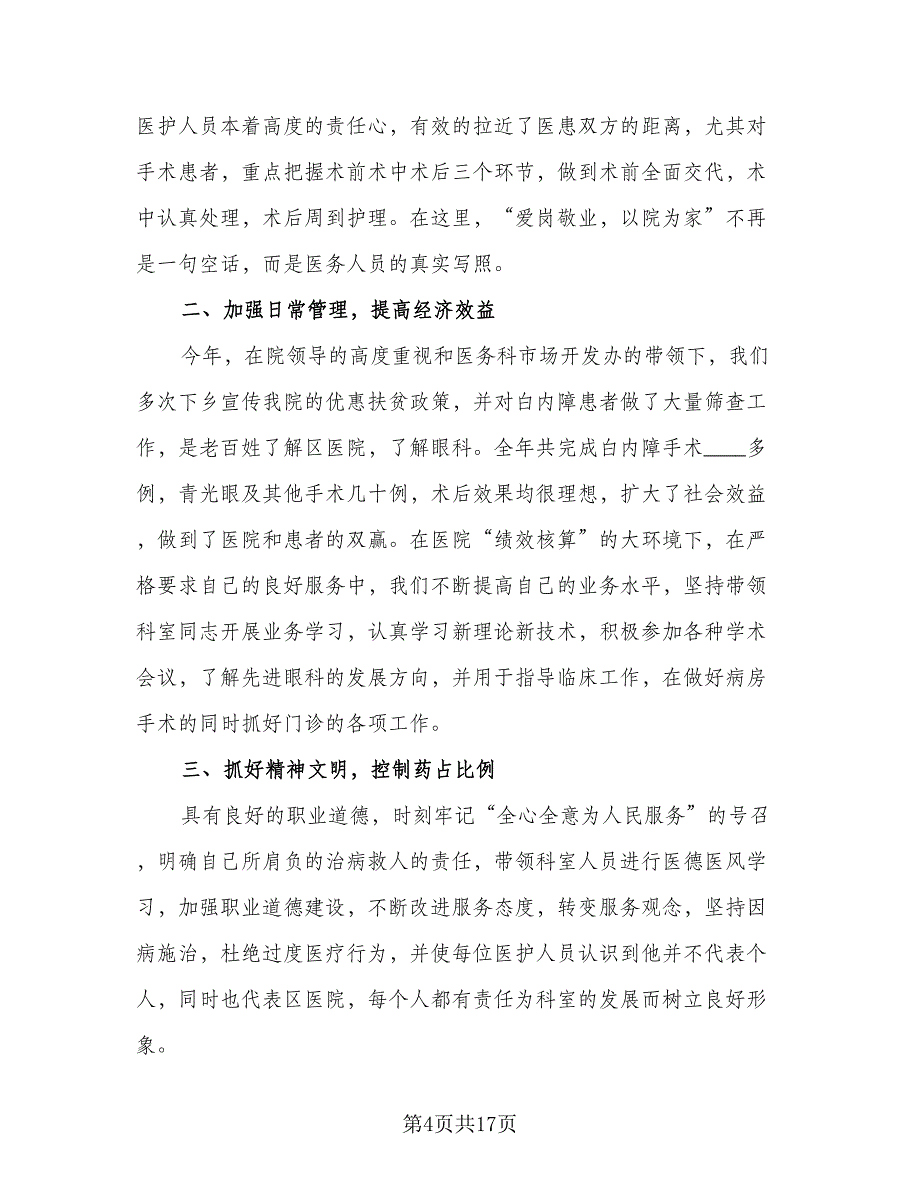 医护人员本着高度的责任心，有效的拉近了医患双方的距离，尤其对
手术患者，重点把握术前术中术后三个环节，做到术前全面交代，术
中认真处理，术后周到护理。在这里，“爱岗敬业，以院为家”不再
是一句空话，而是医务人员的真实写照。
二、加强日常管理，提高经济效益
今年，在院领导的高度重视和医务科市场开发办的带领下，我们
多次下乡宣传我院的优惠扶贫政策，并对白内障患者做了大量筛查工
作，是老百姓了解区医院，了解眼科。全年共完成白内障手术____多
例，青光眼及其他手术几十例，术后效果均很理想，扩大了社会效益
，做到了医院和患者的双赢。在医院“绩效核算”的大环境下，在严
格要求自己的良好服务中，我们不断提高自己的业务水平，坚持带领
科室同志开展业务学习，认真学习新理论新技术，积极参加各种学术
会议，了解先进眼科的发展方向，并用于指导临床工作，在做好病房
手术的同时抓好门诊的各项工作。
三、抓好精神文明，控制药占比例
具有良好的职业道德，时刻牢记“全心全意为人民服务”的号召
，明确自己所肩负的治病救人的责任，带领科室人员进行医德医风学
习，加强职业道德建设，不断改进服务态度，转变服务观念，坚持因
病施治，杜绝过度医疗行为，并使每位医护人员认识到他并不代表个
人，同时也代表区医院，每个人都有责任为科室的发展而树立良好形
象。
第4页共17页